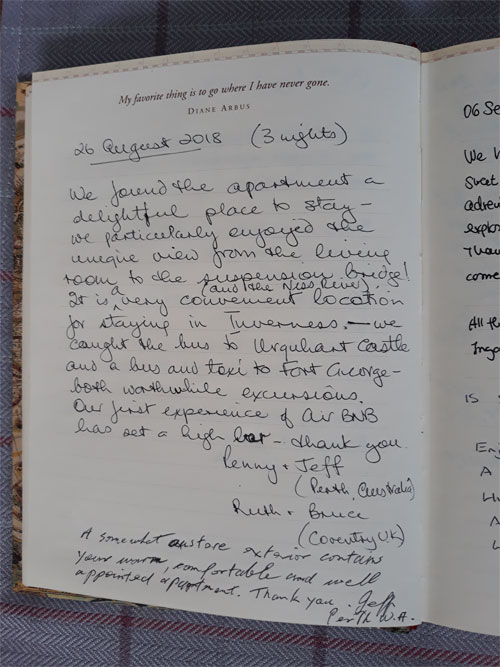 My favorite thing is to go where I have never gone.
DIANE ARBUS
26 August 2018 (3 nights)
We found the apartment a
delightful place to stay -
we particularly enjoyed the
unique view from the living
room to the suspension bridge!
(and the Ness River)
It is a very convenient location
for staying in Inverness. - we
caught the bus to Urquhart Castle
and a bus and taxi to Fort George -
both worthwhile excursions.
Our first experience of Air BNB
has set a high bar - thank you.
Penny + Jeff
(Perth, Australia)
Ruth + Bruce
(Coventry U.K)
A somewhat austere exterior contains
your warm, comfortable and well
appointed apartment. Thank you. Jeff
Perth W.A.
06 Se
We h
explo
come
All th
IS
A